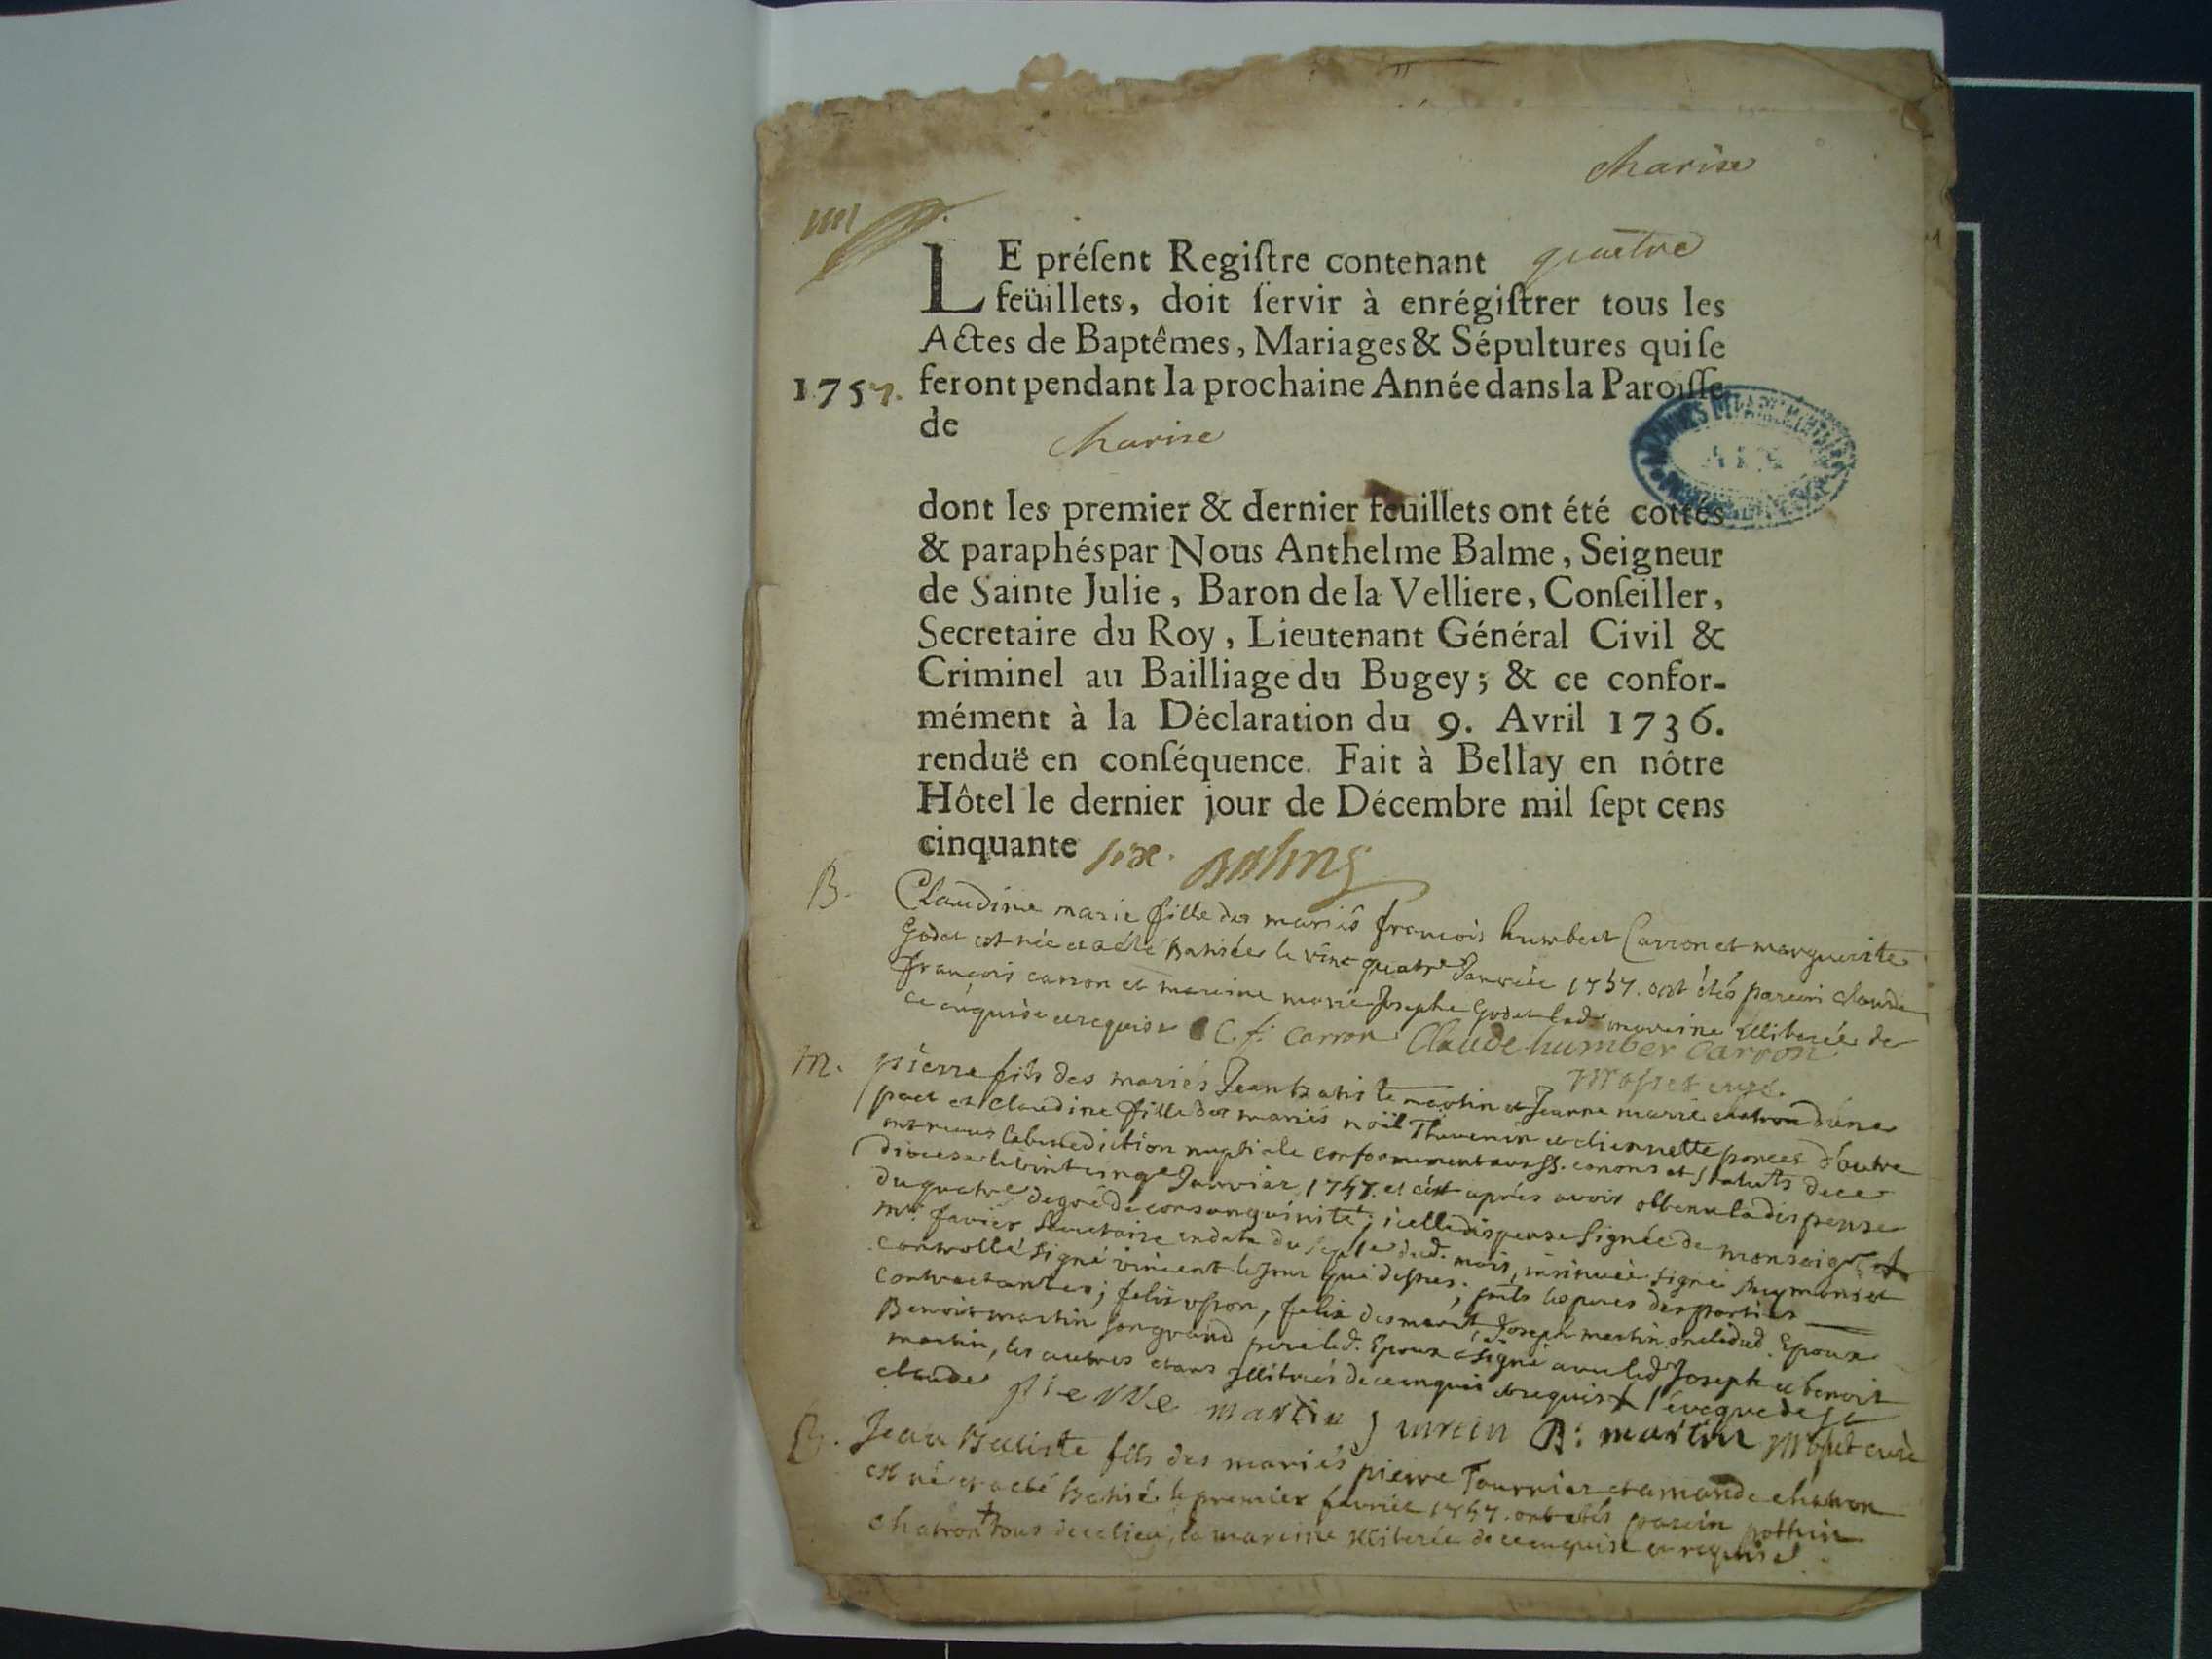 charise
IIII
LE préſent Regiſtre contenant quatre
feüillets, doit ſervir à enrégiſtrer tous les
Actes de Baptêmes, Mariages & Sépultures qui ſe
1757. feront pendant la prochaine Année dans la Paroiſſe
de charise
dont les premier & dernier feuillets ont été cottés
& paraphés par Nous Anthelme Balme, Seigneur
de Sainte Julie, Baron de la Velliere, Conſeiller,
Secretaire du Roy, Lieutenant Général Civil &
Criminel au Bailliage du Bugey; & ce confor-
mément à la Déclaration du 9. Avril 1736.
renduë en conſéquence. Fait à Bellay en nôtre
Hôtel le dernier jour de Décembre mil ſept cens
cinquante six.
B. Claudine marie fille des mariés françois humbert Carron et marguerite
Godet est née et a été batisée le vint quatre Janvier 1757. ont étés parein claude
françois carron et mareine marie Josephe Godet lad. mareine illiterée de
ce enquise et requise C. f. Carron Claude humber carron
curé.
M. pierre fils des mariés Jean batiste martin et Jeanne marie chatron d'une
part et claudine fille des mariés noël Thevenin et etiennette poncet d'autre
ont reçus la benediction nuptiale conformement aux SS. canons et statuts de ce
diocese le vint cinq Janvier 1757. et c'est aprés avoir obtenu la dispense
du quatre degré de consanguinité; icelle dispense signée de monseigr +
mr. favier secretaire en date du sept dud. mois, insinuée signé et
controllé signé vincent le jour que dessus; les peres des parties
contractantes; felix, felix desmaret, Joseph martin oncle dud. Epoux
Benoit martin son grand pere led. Epoux a signé avec led. Joseph et benoit
martin, les autres etans illiterés de ce enquis et requis + l'eveque de st
claude pierre martin J martin B: martin curé
B. Jean Batiste fils des mariés pierre Tournier et amande chatron
est né et a été batisé le premier fevrier 1757. ont etés parein pothin
chatron + tous de ce lieu, la mareine illiterée de ce enquise et requise.